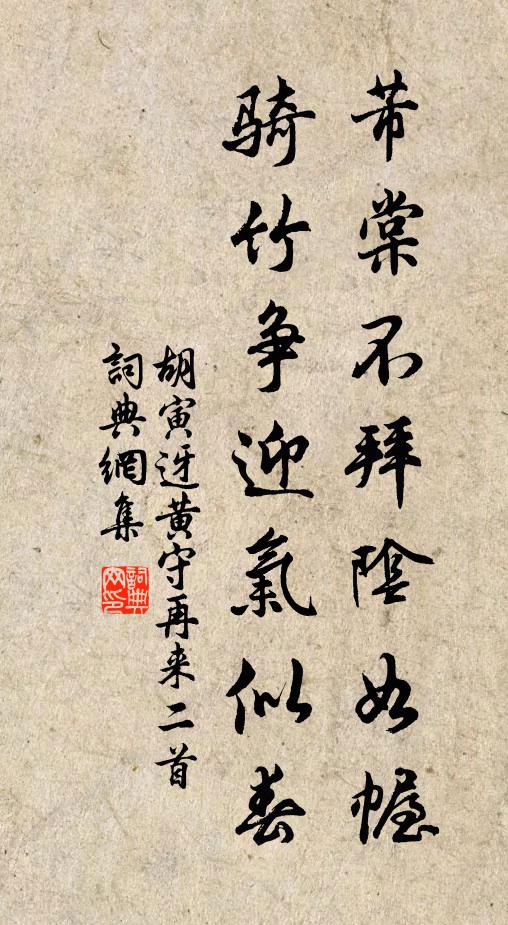 芾棠不拜陰如幄
騎竹争迎氣似春
胡寅迓黄守再来二首
詞典網集
詞典網印